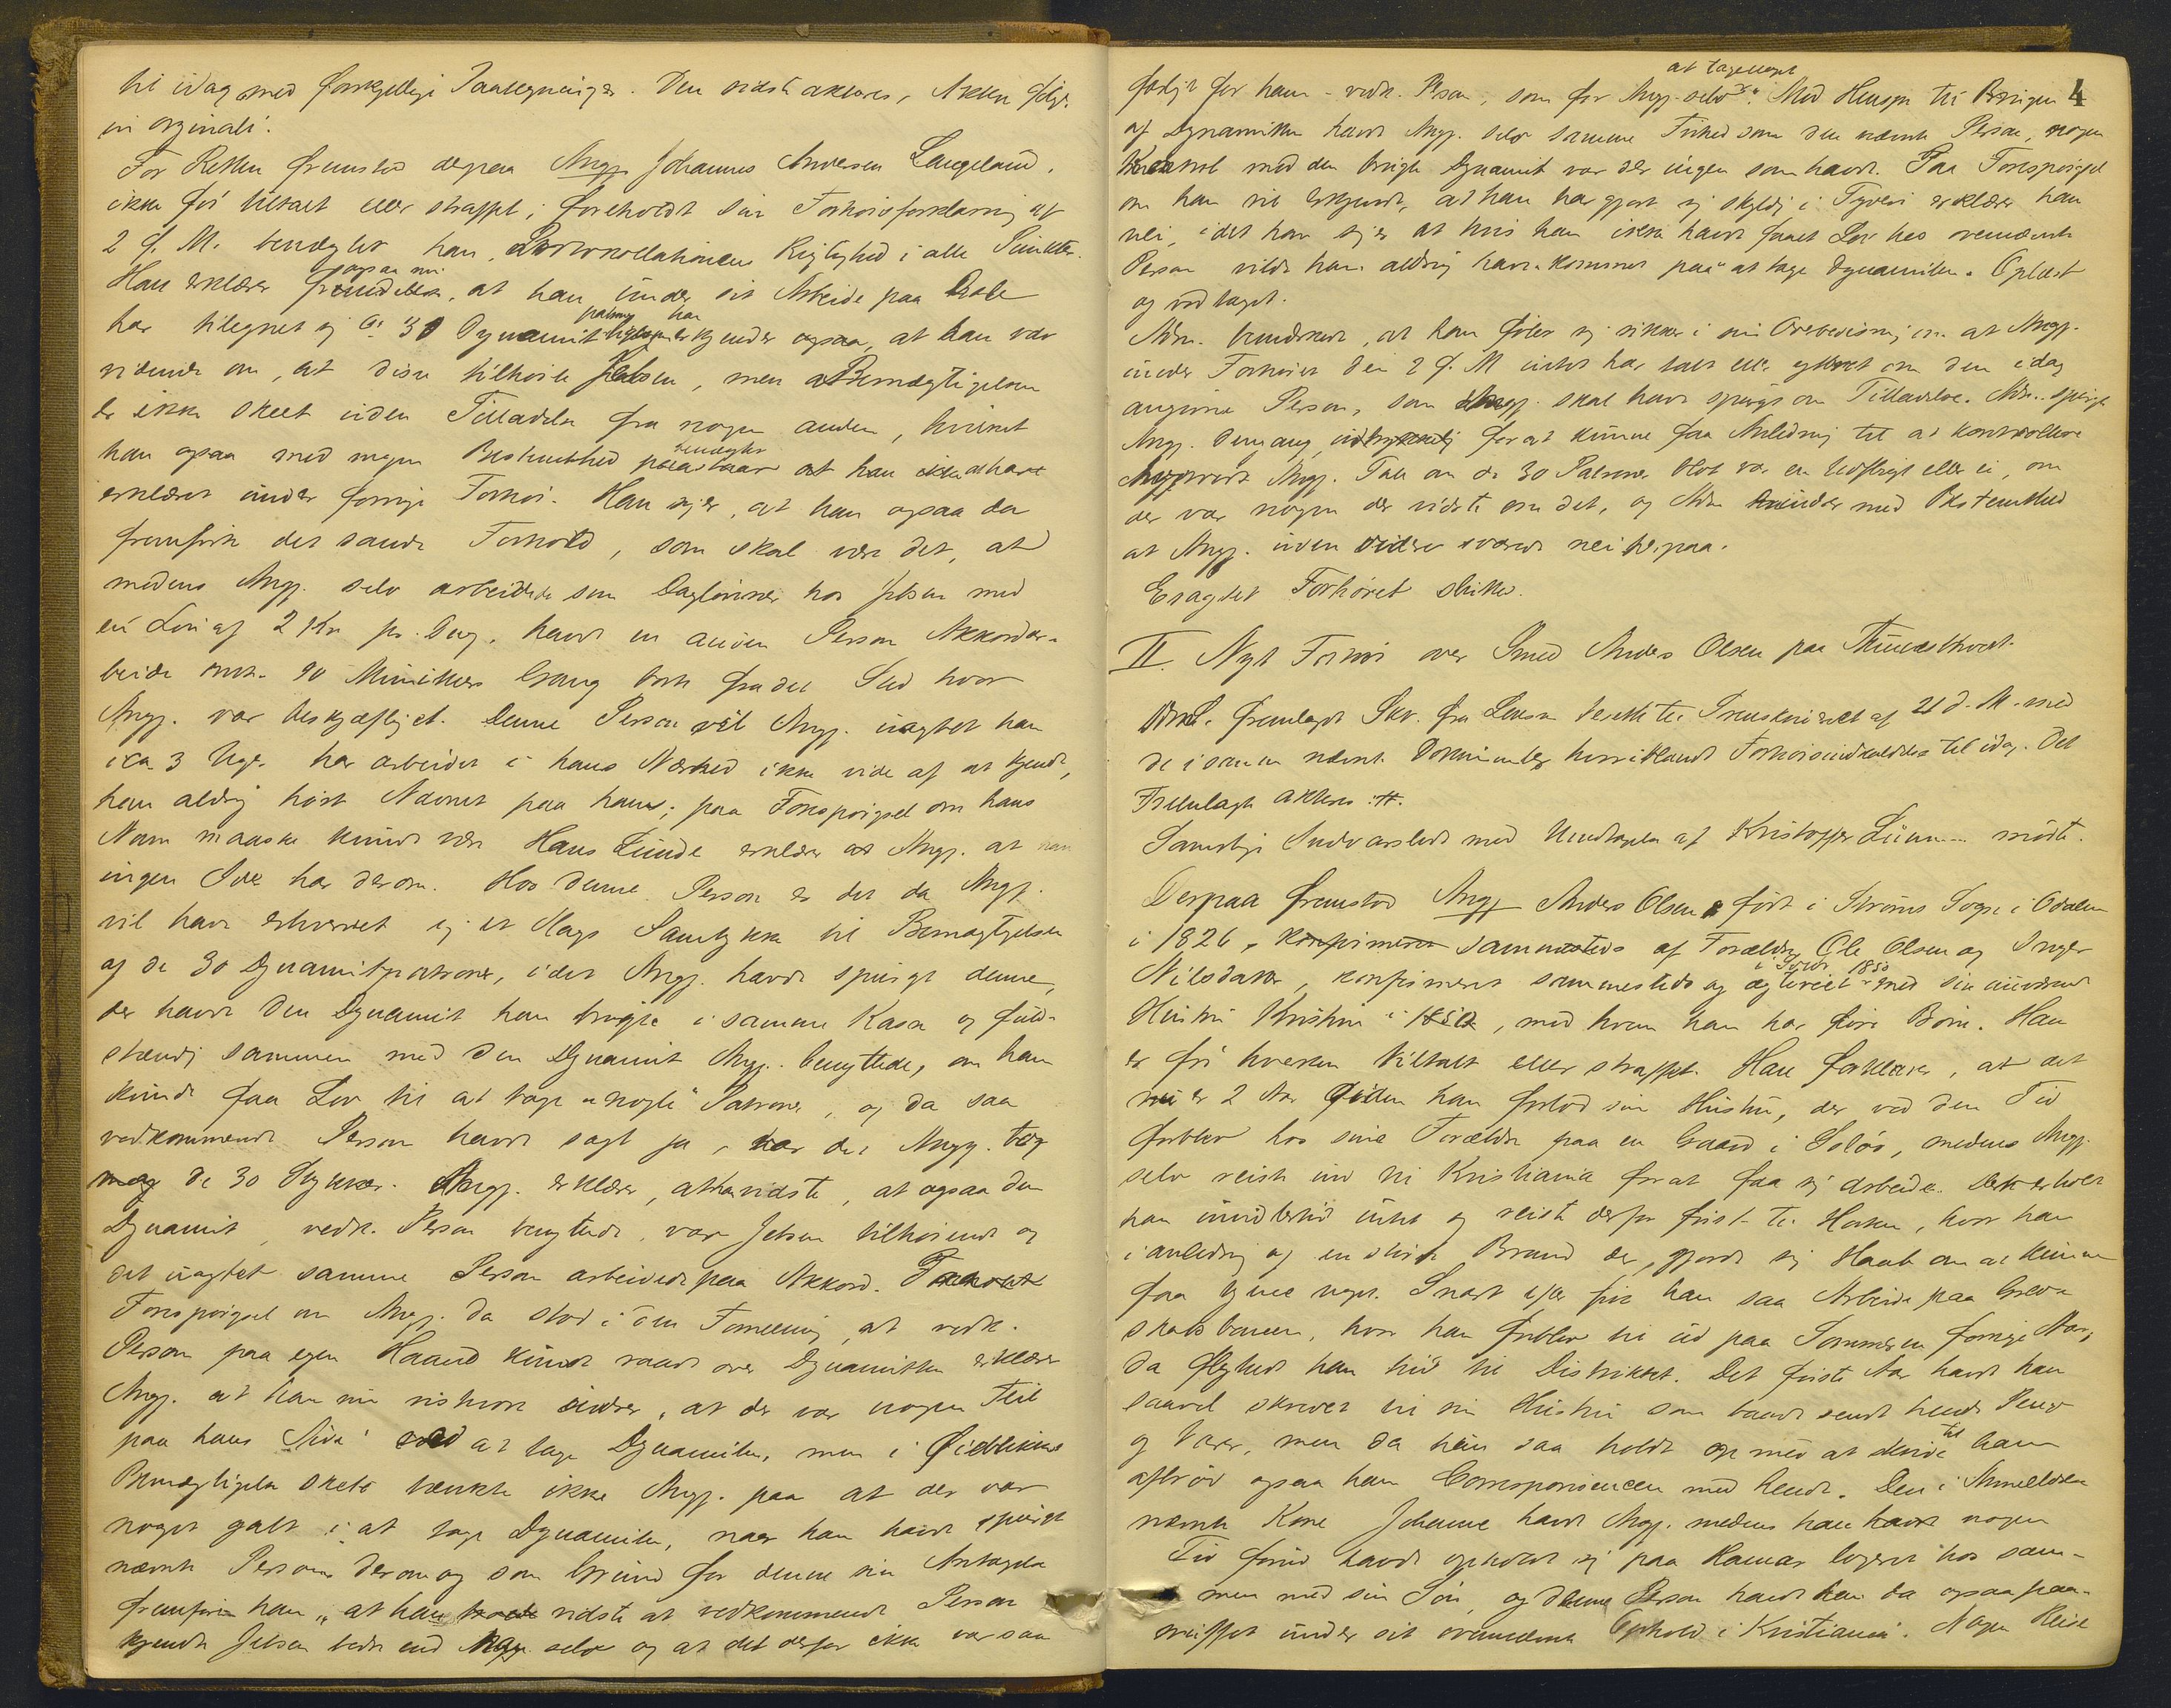 til idag med forskjellige Paategninger. Den sidste aktores, Akten følger
in originali.
For Retten fremstod derpaa Angj. Johannes Andersen Langeland,
ikke før tiltalt eller straffet; foreholdt sin Forhørsforklaring af
2 d. M. benægter han Protokollationens Rigtighed i alle Punkter.
Han erklærer ogsaa nu, at han under sit Arbeide paa
har tilegnet sig 30 Dynamit patroner han erkjender ogsaa, at han var
vidende om, at disse tilhørte Jebsen, men at Bemægtigelsen
er ikke skeet uden Tilladelse fra nogen anden, hvilket
han ogsaa med megen Bestemthed benægter at han ikke at have
erklæret under forrige Forhør. Han siger, at han ogsaa da
fremførte det sande Forhold, som skal være det, at
medens Angj. selv arbeidede som Daglønner hos Jebsen med
en Løn af 2 Kr pr. Dag, havde en anden Person Akkordar-
beide omtr. 90 Minutters Gang bort fra det Sted hvor
Angj. var beskjæftiget. Denne Person vil Angj. uagtet han
i ca 3 Uger har arbeidet i hans Nærhed ikke vide af at kjende,
han aldrig hørt Navnet paa ham; paa Forespørgsel om hans
Navn maaske kunde være Hans Lunde erklærer Angj. at han
ingen Idee har derom. Hos denne Person er det da Angj.
vil have erhvervet sig et Slags Samtykke til Bemægtigelsen
af de 30 Dynamitpatroner, idet Angj. havde spurgt denne,
der havde den Dynamit han brugte i samme Kasse og fuld-
stændig sammen med den Dynamit Angj. benyttede, om han
kunde faa Lov til at tage "nogle" Patroner, og da saa
vedkommende Person havde sagt ja, var det Angj. tog
de 30 Stykker. Angj. erklærer, at han vidste, at ogsaa den
Dynamit, vedk. Person benyttede, var Jebsen tilhørende og
det uagtet samme Person arbeidede paa Akkord.
Forespørgsel om Angj. da stod i den Formening, at vedk.
Person paa egen Haand kunde raade over Dynamitten erklærer
Angj. at han nu vistnok indser, at der var nogen Feil
paa hans Side ved at tage Dynamiten, men i Øieblikket
Bemægtigelsen skete tænkte ikke Angj. paa at der var
noget galt i at tage Dynamiten, naar han havde spurgt
nævnte Person derom og som Grund for denne sin Antagelse
fremfører han, at han vidste at vedkommende Person
kjendte Jebsen bedre end Angj. selv og at det derfor ikke var saa
4
at tage noget
farligt for ham - vedk. Person, som for Angj. selv. Med Hensyn til Brugen
af Dynamiten havde Angj. selv samme Frihed som den nævnte Person, nogen
Kontrol med den brugte Dynamit var der ingen som havde. Paa Forespørgsel
om han vil erkjende, at han har gjort sig skyldig i Tyveri erklærer han
nei, idet han siger at hvis han ikke havde faaet Lov hos ovennævnte
Person vilde han aldrig være kommet paa at tage Dynamiten. Oplæst
og vedtaget.
Adm. bemærkede, at han føler sig sikker i sin Overbevisning om at Angj.
under Forhøret den 2 d. M intet har talt eller ytret om den idag
angivne Person, som Angj. skal have spurgt om Tilladelse. Adm. spurgte
Angj. dengang udtrykkelig for at kunne faa Anledning til at kontrollere
hvorvidt Angj. Tale om de 30 Patroner blot var en Udflugt eller ei, om
der var nogen der vidste om det, og Adm. minder med Bestemthed
at Angj. uden videre svarede nei herpaa.
Eragtet Forhøret sluttet.
II. Nyt Forhør over Smed Anders Olsen paa
fremlagde Skr. fra Lensm. af 21 d. M. med
de i samme nævnte Dokumenter hvoriblandt Forhørsindkaldelse til idag. Det
Fremlagte akteres #.
Samtlige Indvarslede med Undtagelse af Kristoffer mødte.
Derpaa fremstod Angj Anders Olsen født i Strøms Sogn i Odalen
i 1826, sammesteds af Forældre Ole Olsen og Inger
Nilsdatter, konfirmeret sammesteds og ægteviet i 1850 med sin nuværende
Hustru Kristine, med hvem han har fire Børn. Han
er før hverken tiltalt eller straffet. Han forklarer, at det
nu er 2 Aar siden han forlod sin Hustru, der ved den Tid
forblev hos sine Forældre paa en Gaard i Solør, medens Angj.
selv reiste ind til Kristiania for at faa sig arbeide. Dette erholdt
han imidlertid intet og reiste derfor først til Horten, hvor han
i anledning af en stor Brand der, gjorde sig Haab om at kunne
faa tjene noget. Snart efter fik han saa Arbeide paa Greve-
skabsbanen, hvor han forblev til ud paa Sommeren forrige Aar,
da flyttede han hid til Distriktet. Det første Aar havde han
saavel skrevet til sin Hustru som baade sendt hende Penge
og Varer, men da hun saa holdt op med at skrive til ham
afbrød ogsaa han Correspondencen med hende. Den i Anmeldelsen
nævnte Kone Johanne havde Angj. medens han nogen
Tid forud havde opholdt sig paa Hamar logeret hos sam-
men med sin Søn, og denne Person havde han da ogsaa paa-
truffet under sit ovennævnte Ophold i Kristiania. Nogen Reise